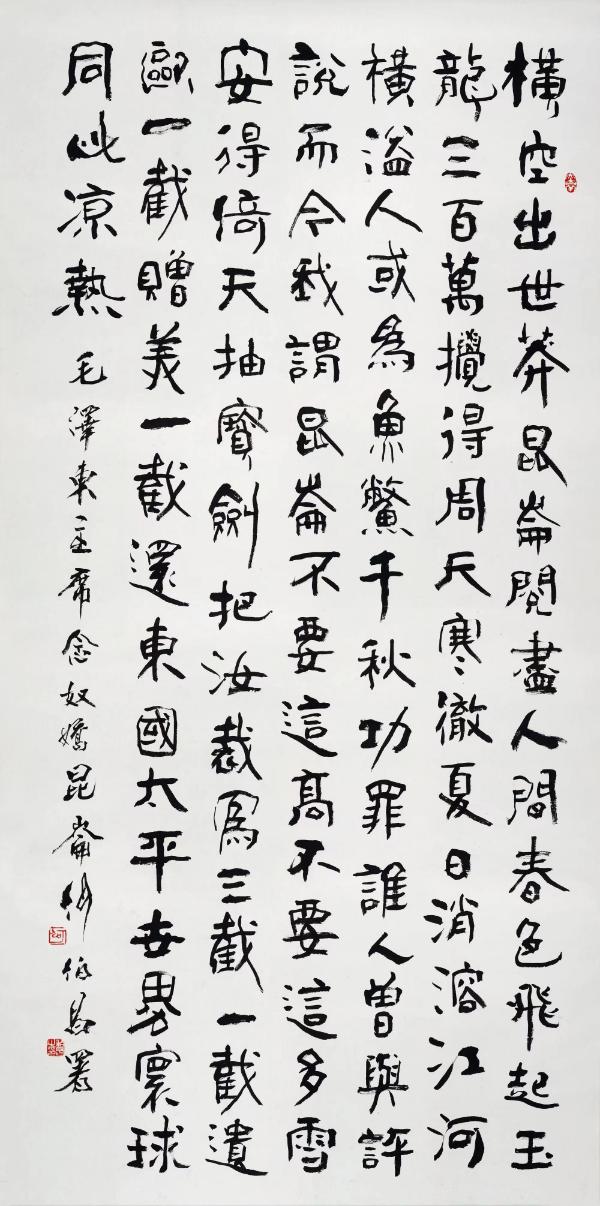 橫空出世莽昆崙閱盡人間春色飛起玉
龍三百萬攪得周天寒徹夏日消溶江河
橫溢人或為魚鱉千秋功罪誰人曾與評
說而今我謂昆崙不要這高不要這多雪
安得倚天抽寶劍把汝裁為三截一截遺
歐一截贈美一截還東國太平世界寰球
同此凉熱
毛澤東主席念奴嬌昆崙